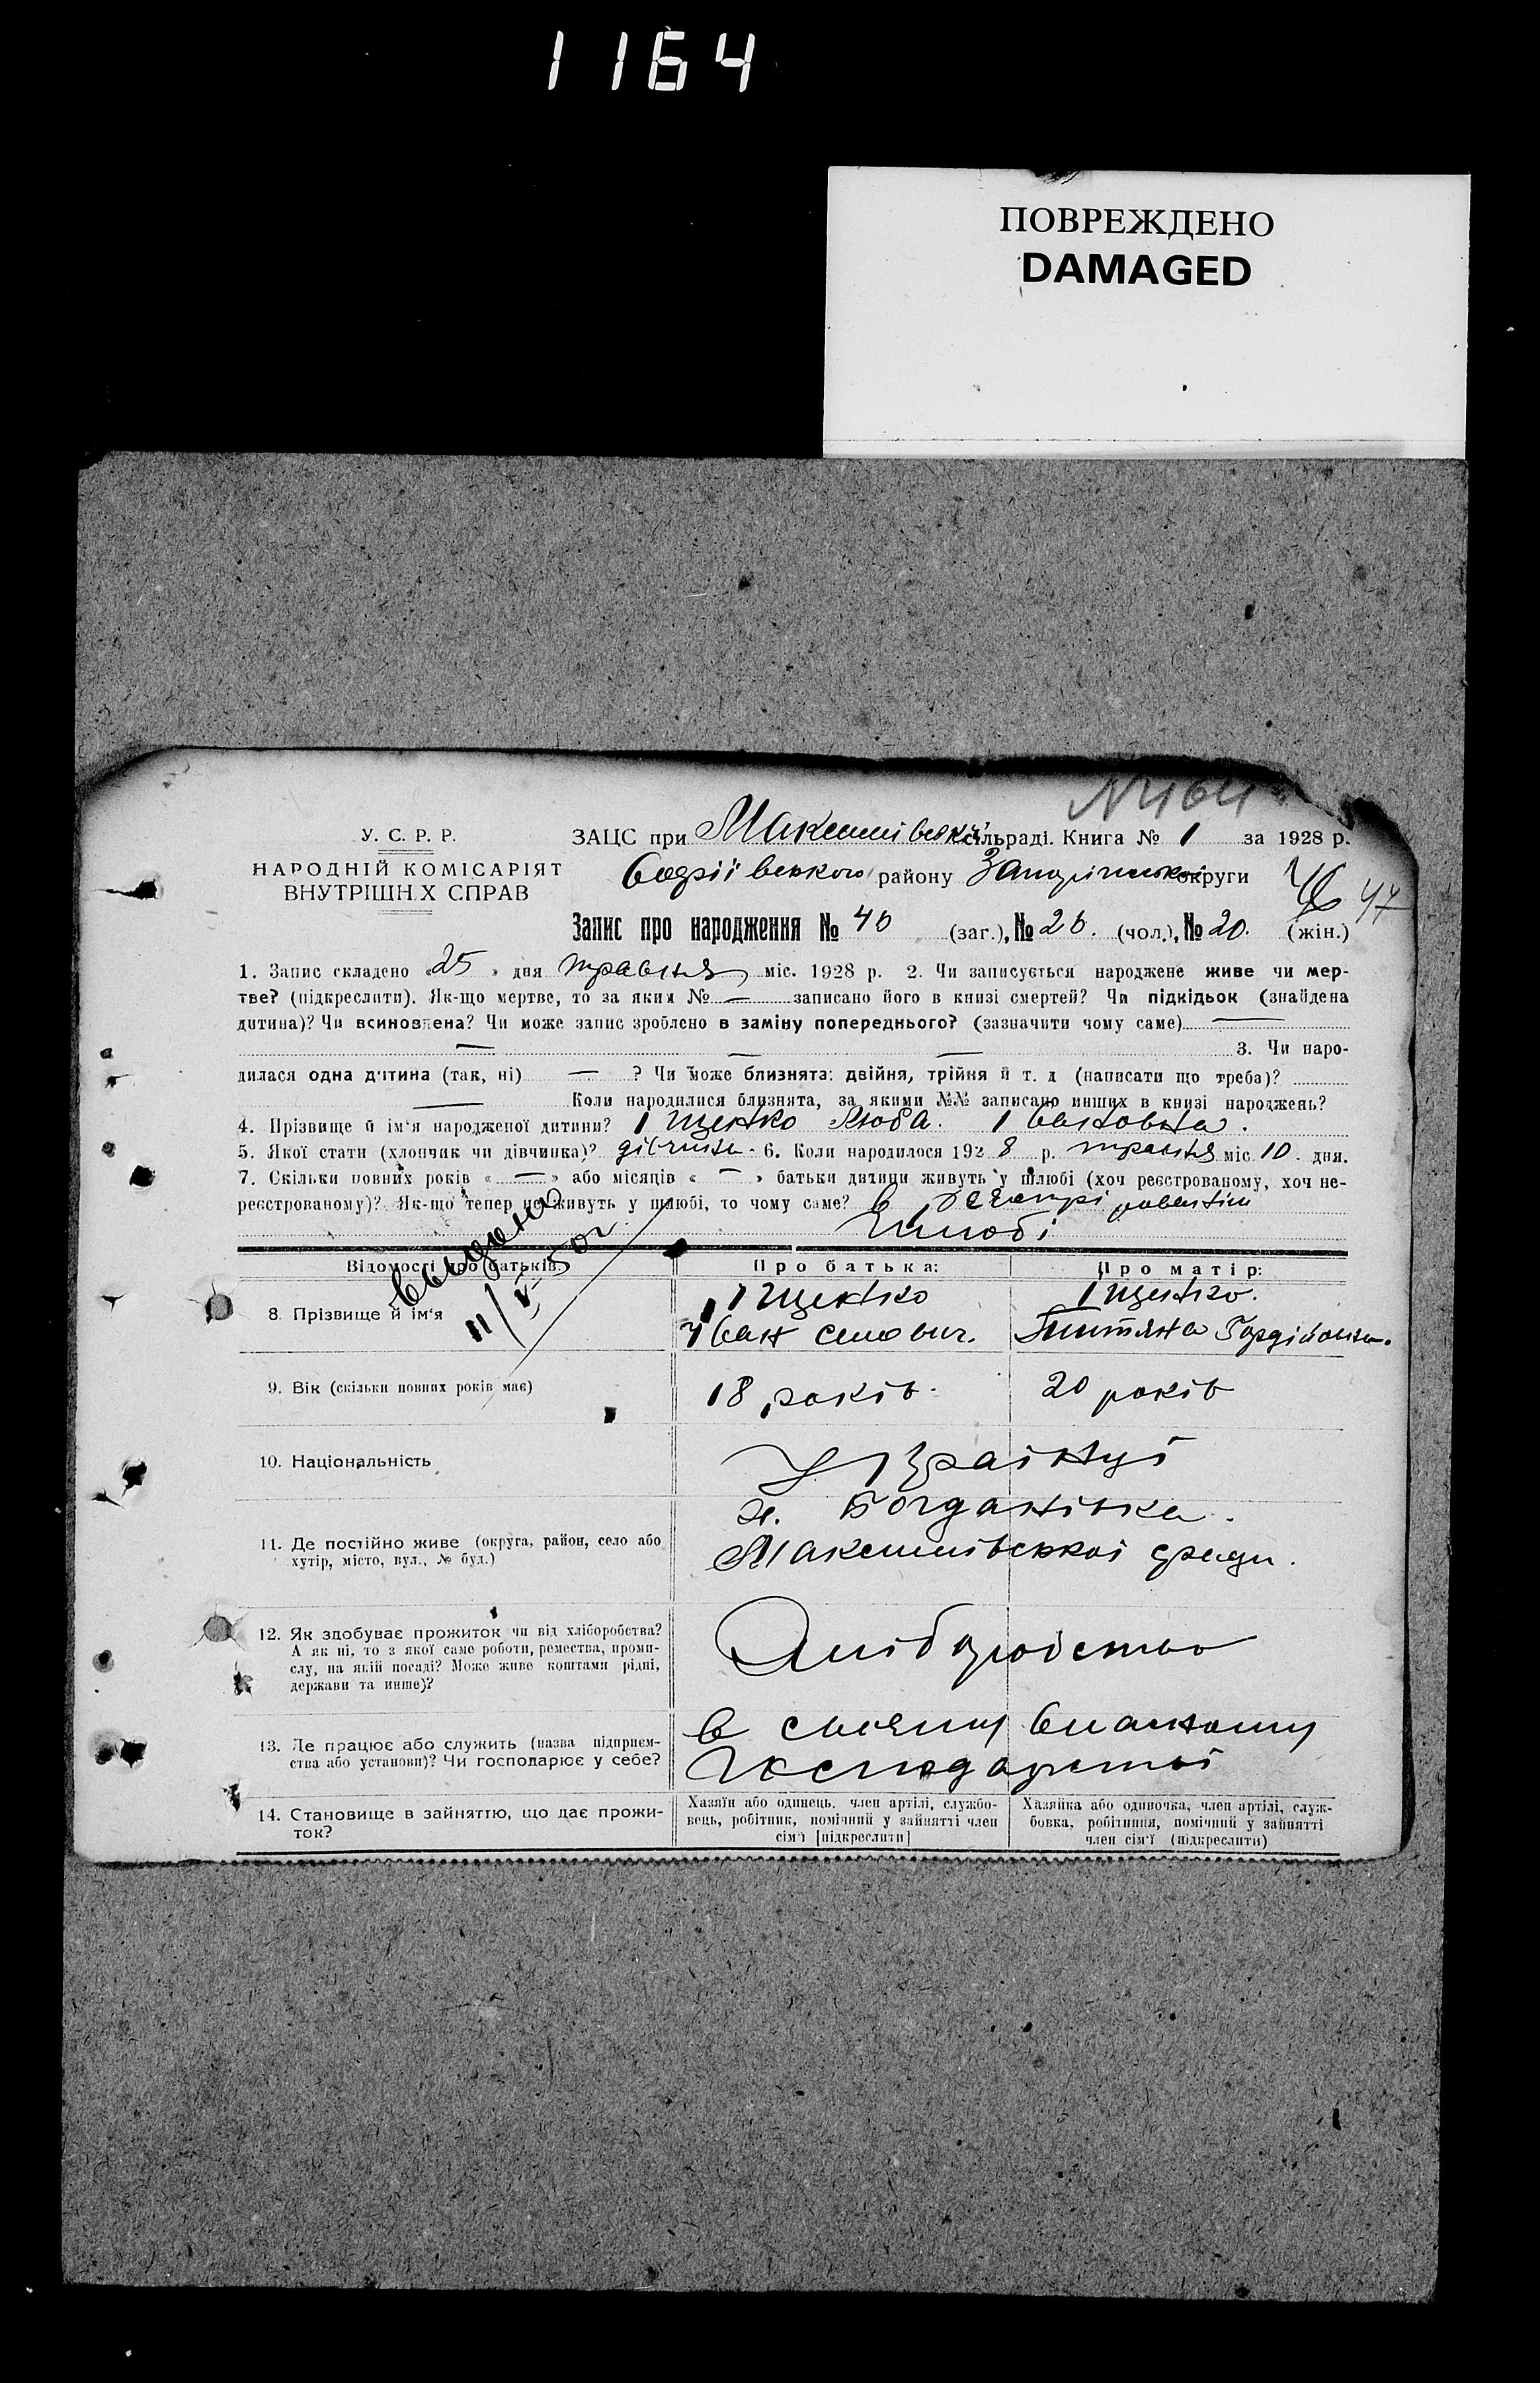 1164
ПОВРЕЖДЕНО
DAMAGED
У. С. Р. Р.
НАРОДНІЙ КОМІСАРІЯТ
ВНУТРІШН.Х СПРАВ
ЗАЦС при сільраді. Книга № 1 за 1928 р.
району округи
46 47
Запис про народження № 46 (заг.), № 26. (чол.), № 20. (жін.)
1. Запис складено «25» дня травня міс. 1928 р. 2. Чи записується народжене живе чи мер-
тве? (підкреслити). Як-що мертве, то за яким № — записано його в книзі смертей? Чи підкідьок (знайдена
дитина)? Чи всиновлена? Чи може запис зроблено в заміну попереднього? (зазначити чому саме) —
— — — 3. Чи наро-
дилася одна дитина (так, ні) — ? Чи може близнята: двійня, трійня й т. д (написати що треба)?
— Коли народилися близнята, за якими №№ записано инших в книзі народжень?
4. Прізвище й ім'я народженої дитини? Іщенко Люба. Івановна.
5. Якої стати (хлопчик чи дівчинка)? дівчина. 6. Коли народилося 1928 р. травня міс 10. дня.
7. Скільки повних років « — » або місяців « — » батьки дитини живуть у шлюбі (хоч реєстрованому, хоч не-
реєстрованому)? Як-що тепер не живуть у шлюбі, то чому саме? в
шлюбі
Відомості про батьків.
Про батька:
Про матір:
8. Прізвище й ім'я
Іщенко
Іван
Іщенко.
Гордійовна.
9. Вік (скільки повних років має)
18 років.
20 років
10. Національність
Українці
11. Де постійно живе (округа, район, село або
хутір, місто, вул., № буд.)
х. Богданівка.
Максимівської сради.
12. Як здобуває прожиток чи від хліборобства?
А як ні, то з якої саме роботи, ремества, проми-
слу, на якій посаді? Може живе коштами рідні,
держави та инше)?
Хліборобство
13. Де працює або служить (назва підприєм-
ства або установи)? Чи господарює у себе?
в своєму власному
господарстві
14. Становище в зайняттю, що дає прожи-
ток?
Хазяїн або одинець, член артілі, службо-
вець, робітник, помічний у зайнятті член
сім'ї [підкреслити]
Хазяйка або одиночка, член артілі, служ-
бовка, робітниця, помічний у зайнятті
член сім'ї (підкреслити)